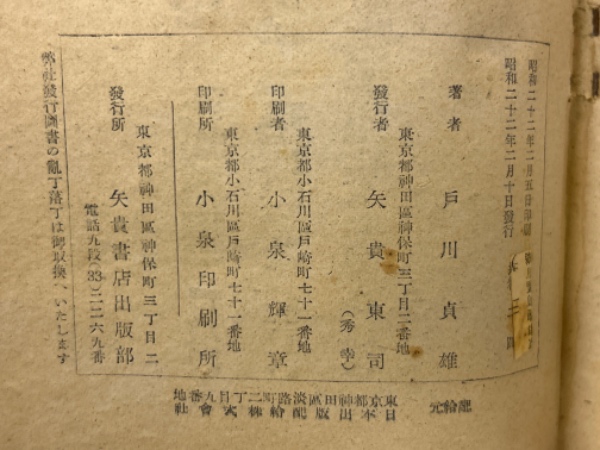 昭和二十二年二月五日印刷
昭和二十二年二月十日發行
著者 戸川貞雄
東京都神田區神保町三丁目二番地
發行者 矢貴東司
(秀幸)
東京都小石川區戸崎町七十一番地
印刷者 小泉輝章
東京都小石川區戸崎町七十一番地
印刷所 小泉印刷所
東京都神田區神保町三丁目二
發行所 矢貴書店出版部
電話九段(33)二二六九番
弊社發行圖書の亂丁落丁は御取換へいたします
配給元
東京都神田區淡路町二丁目九番地
日本出版配給株式會社